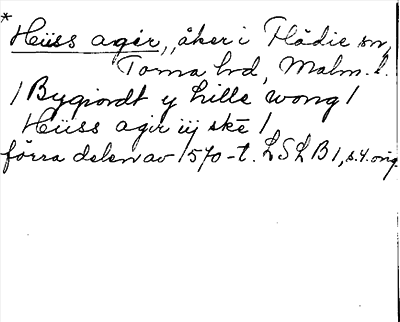 *
Hüss agér, åker i Flädie sn,
Torna hd, Malm. l.
/ Bygiordt y lille wong /
Hüss agir iij ske /
förra delen av 1570-t. LSLB 1, s. 4. orig.